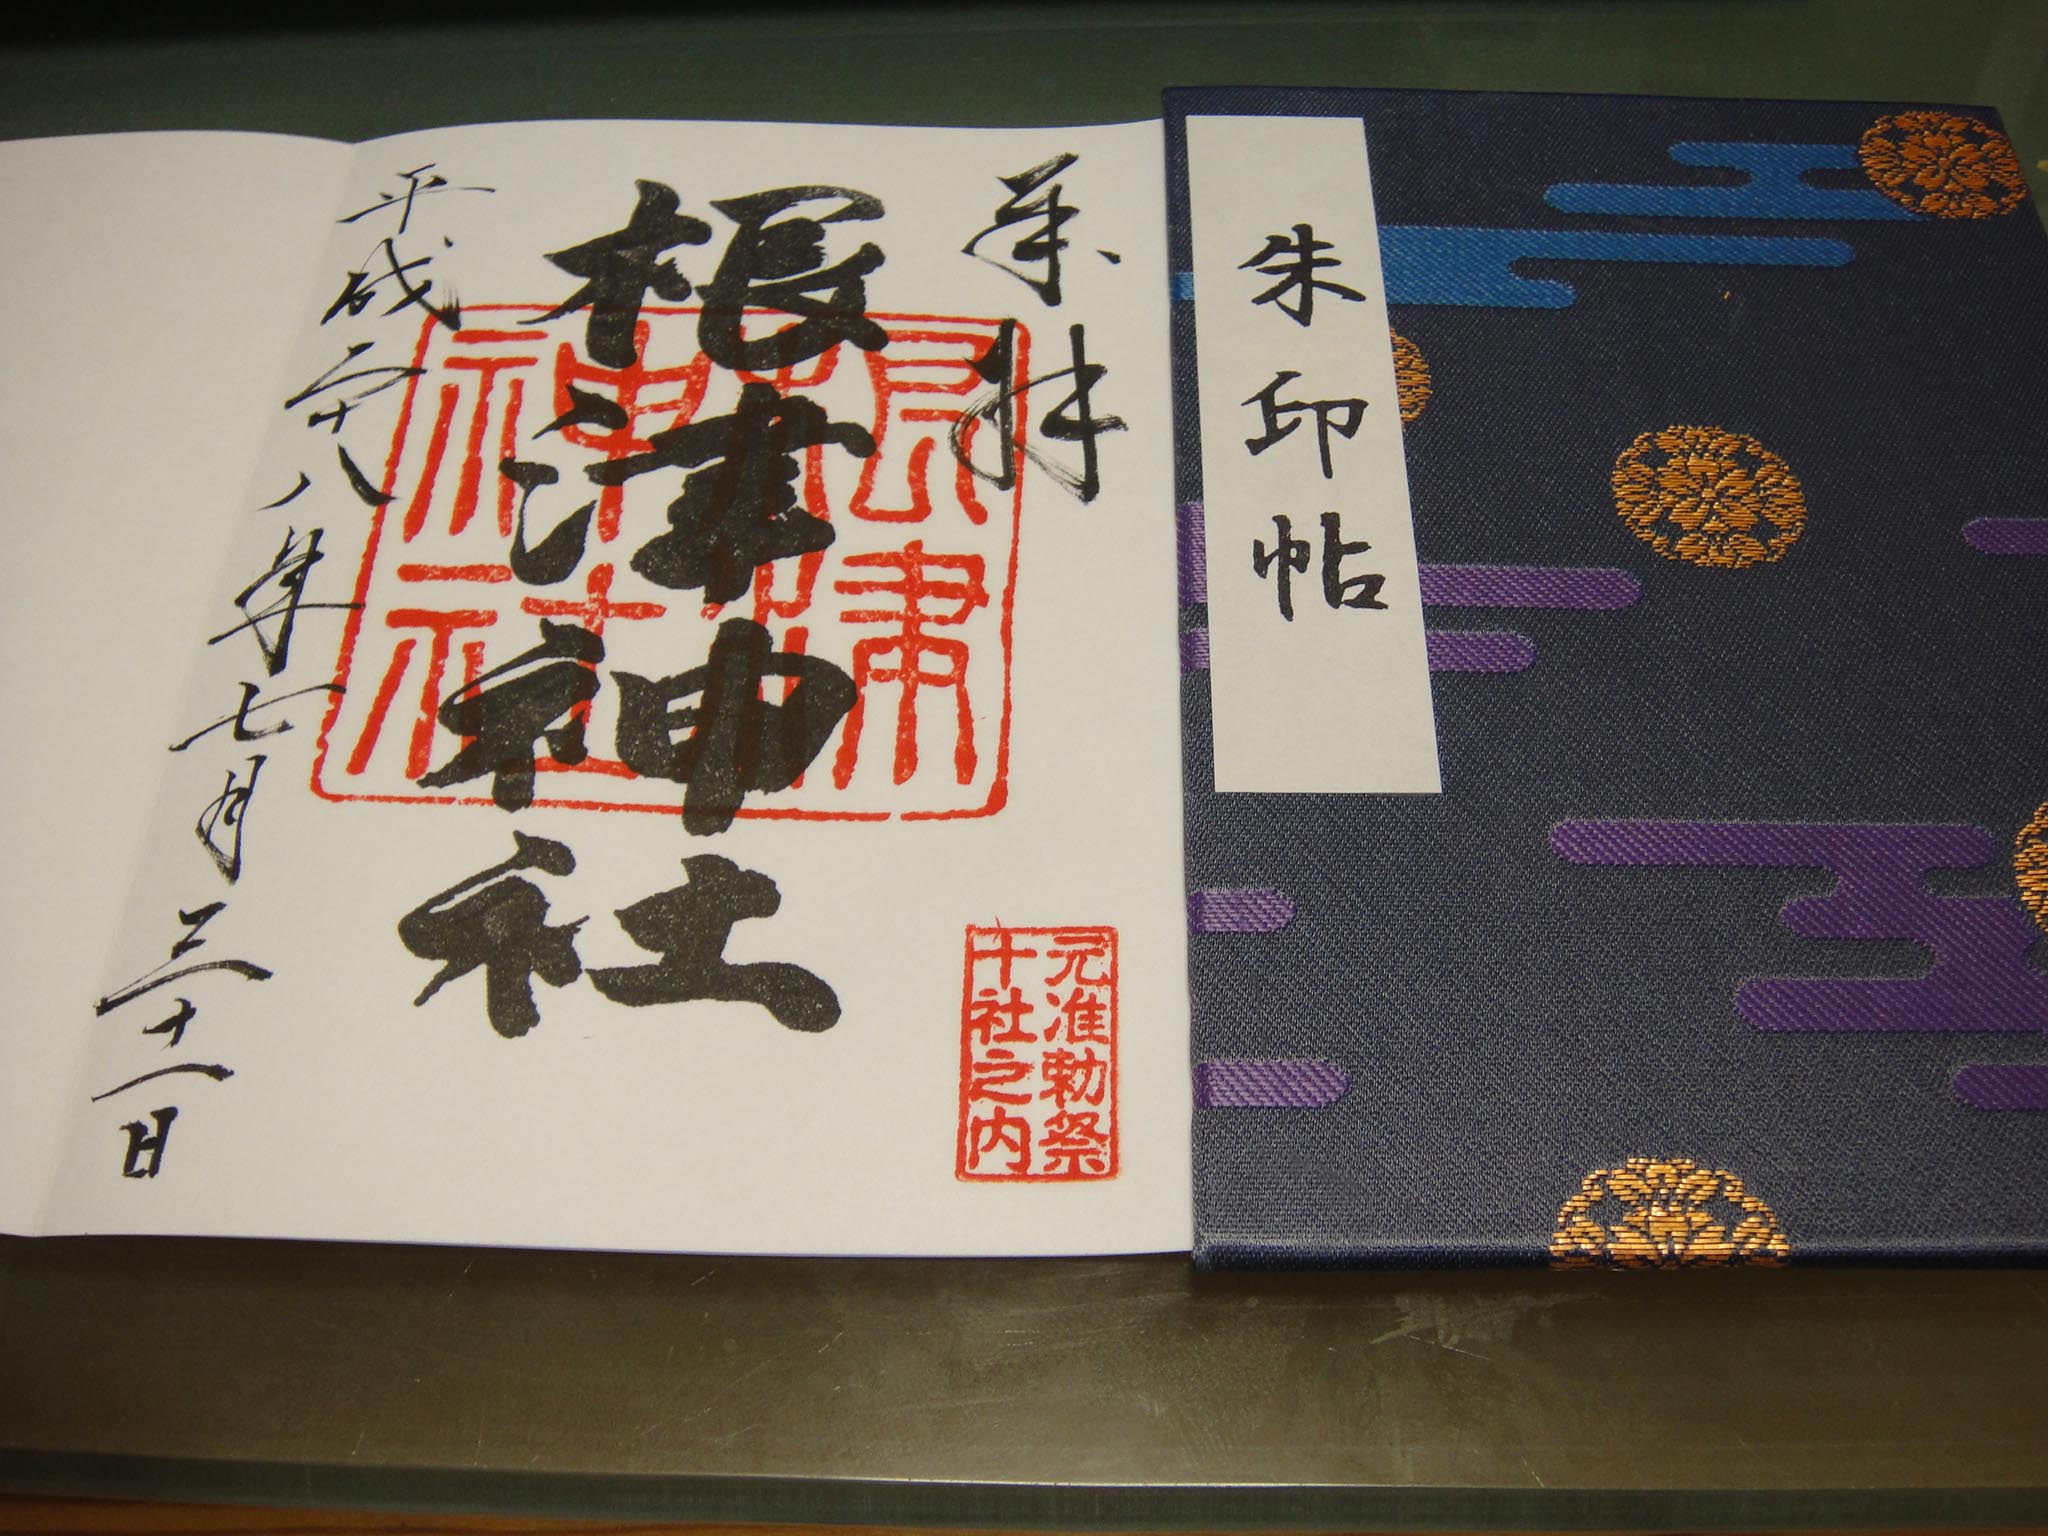 朱印帖
奉拝
根津神社
根津
神社
元准勅祭
十社之内
平成二十八年七月三十一日